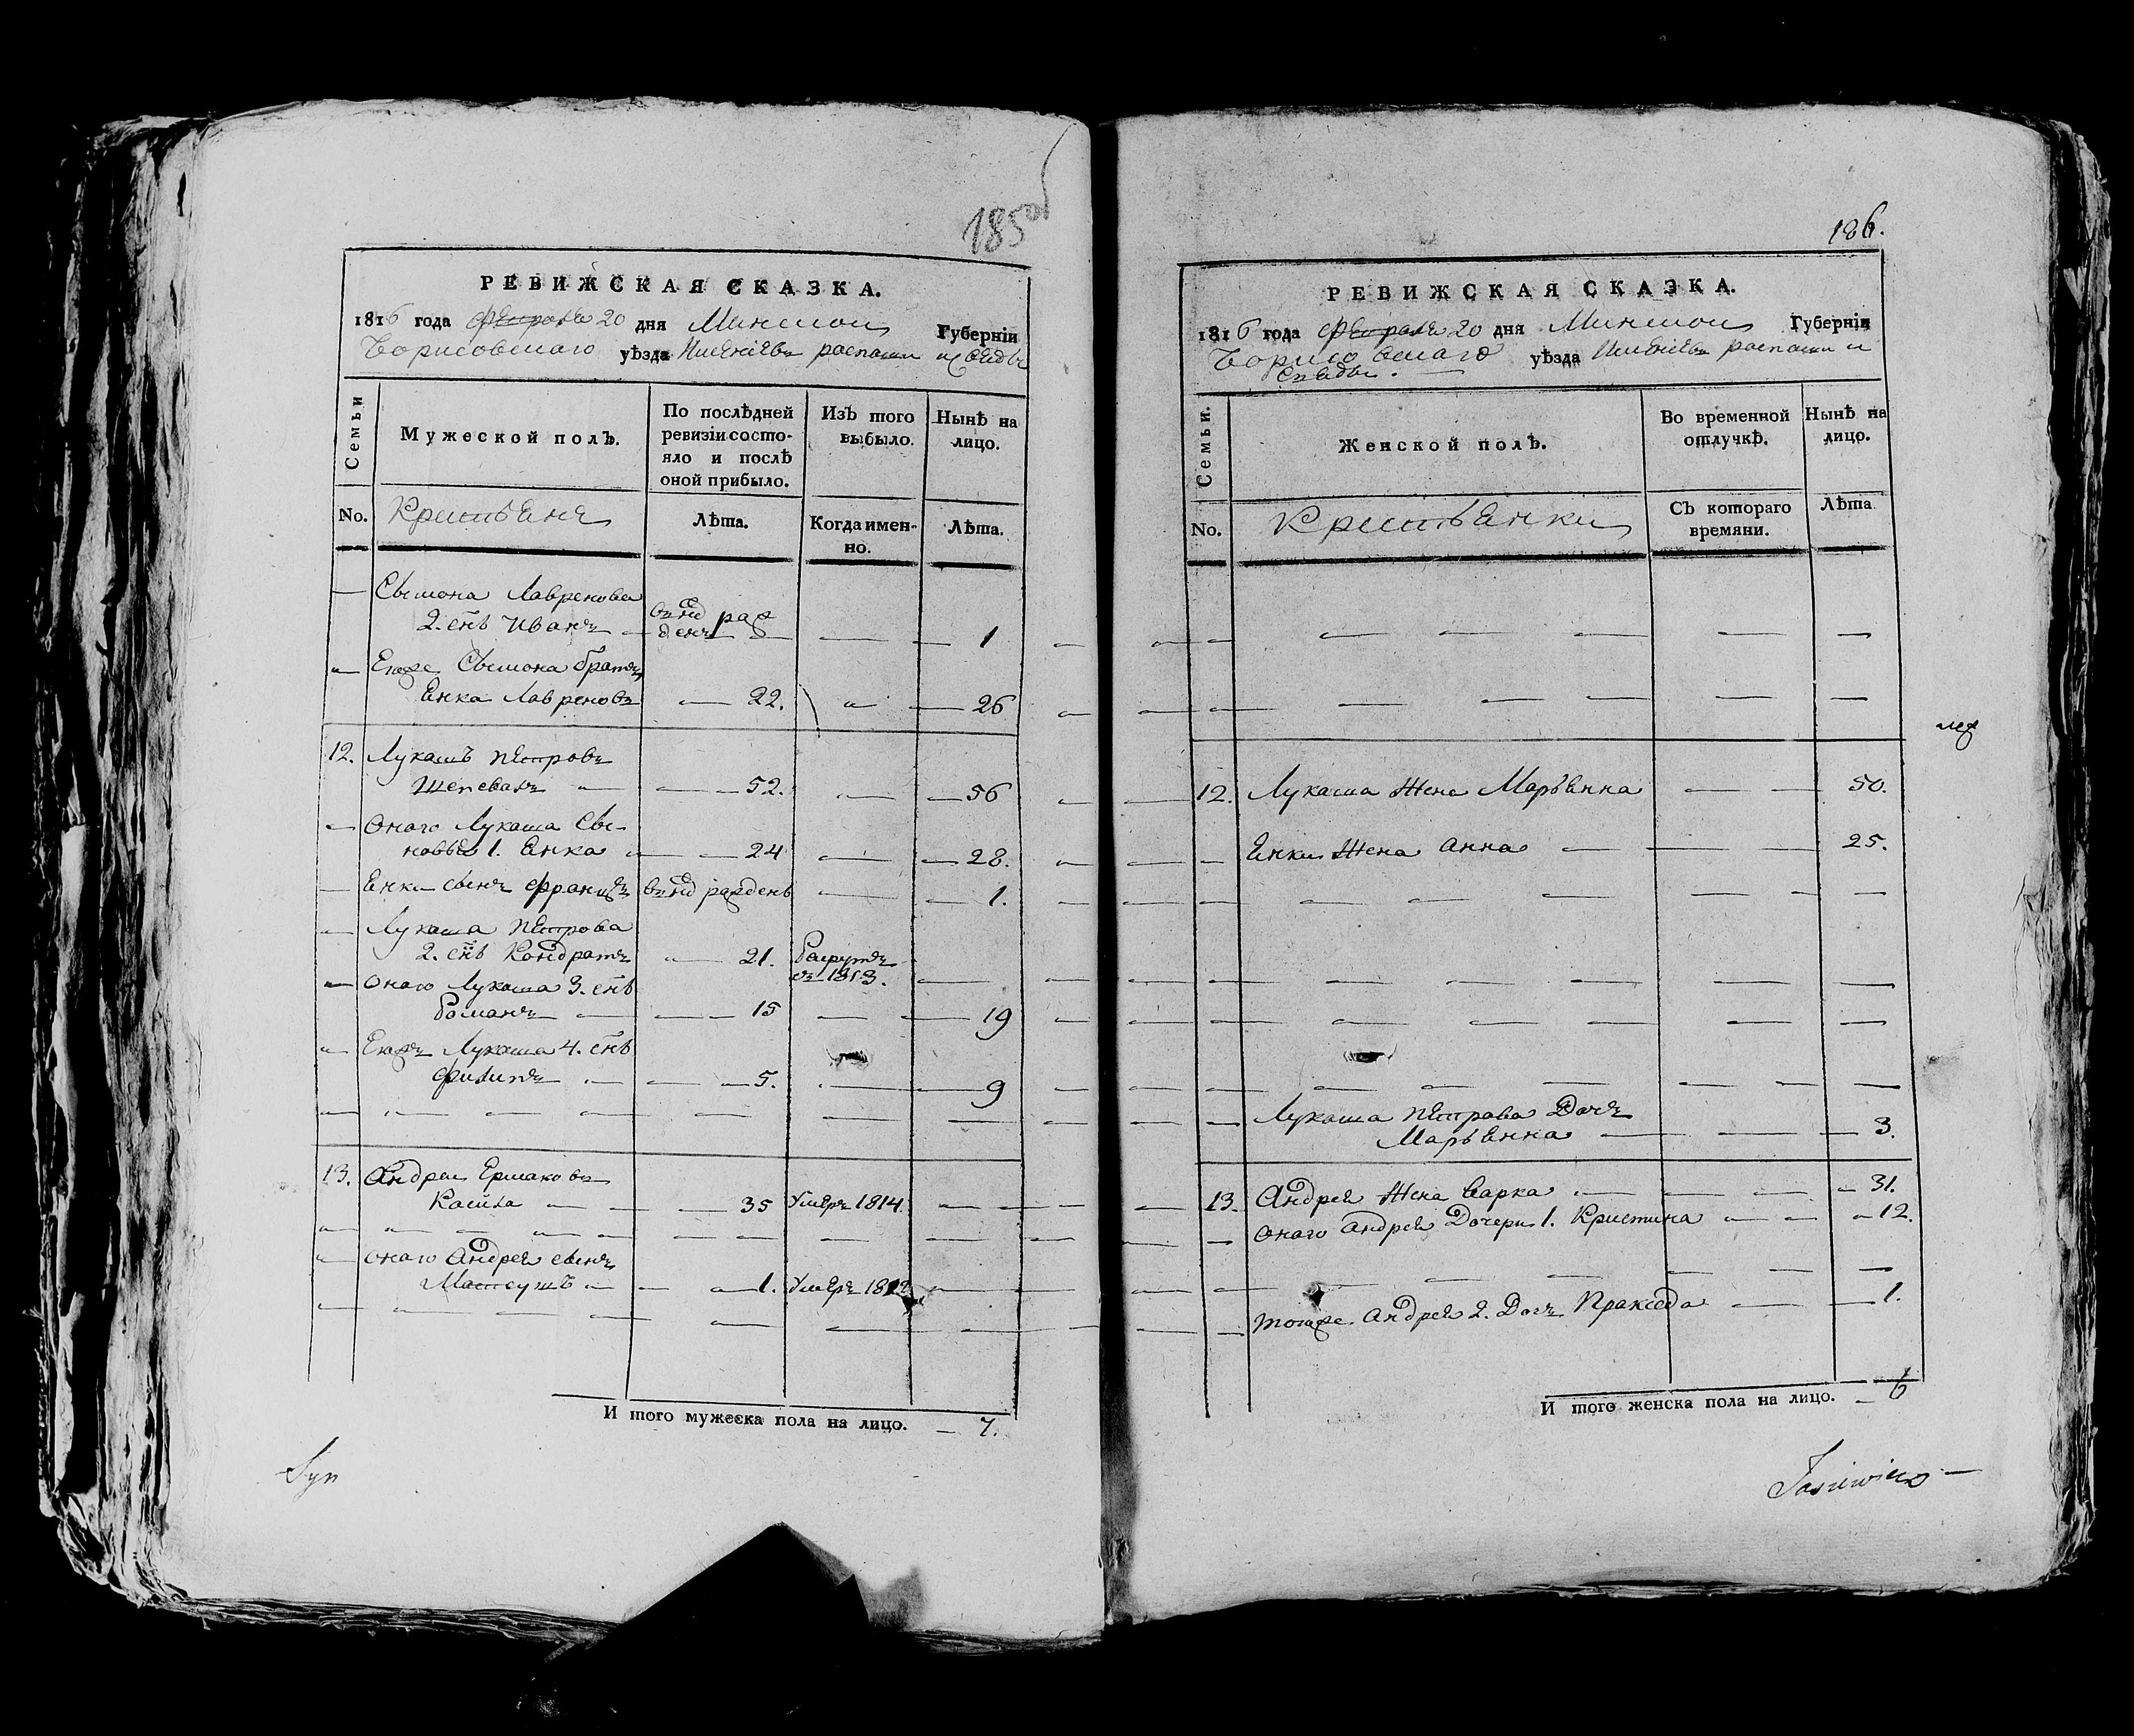 185об
РЕВИЖСКАЯ СКАЗКА.
1816 года Февраля 20 дня Минской Губерніи
Борисовскаго уѣзда Имѣніевъ
Семьи
Мужеской полъ.
По послѣдней ревизіи состо-
яло и послѣ
оной прибыло.
Изъ того
выбыло.
Нынѣ на
лицо.
No.
Крестьяне
Лѣта.
Когда имен-
но.
Лѣта.
— Сымона Лавренова
2. снъ Иванъ — внов рожденъ — 1
— Егоже Сымона братъ
Енка Лавреновъ — 22. — 26
12. Лукашъ Петровъ
— 52. — 56
— Онаго Лукаша Сы-
новья 1. Енка — 24 — 28.
— Енки сынъ Францъ внов рожденъ — 1.
— Лукаша Петрова
2. снъ Кондратъ — 21. Рекрутъ
въ 1813.
— Онаго Лукаша 3. снъ
Романъ — 15 — 19
— Егожъ Лукаша 4. снъ
Филипъ — 5. — 9
13. Андрей Ермаковъ
— 35 Умеръ 1814.
— Онаго Андрея сынъ
Матеушъ — 1. Умеръ 1812
И того мужеска пола на лицо. — 7.
Syn
186.
РЕВИЖСКАЯ СКАЗКА.
1816 года Февраля 20 дня Минской Губерніи
Борисовскаго уѣзда Имѣніевъ
Семьи.
Женской полъ.
Во временной
отлучкѣ.
Нынѣ на
лицо.
No.
Крестьянки
Съ котораго
времяни.
Лѣта
12. Лукаша Жена Марьянна — 50.
— Енки Жена Анна — 25.
— Лукаша Петрова Дочъ
Марьянна — 3.
13. Андрея Жена Варка — 31.
— Онаго Андрея Дочери 1. Кристина — 12.
— Тогоже Андрея 2. Дочъ Пракседа — 1.
И того женска пола на лицо. — 6